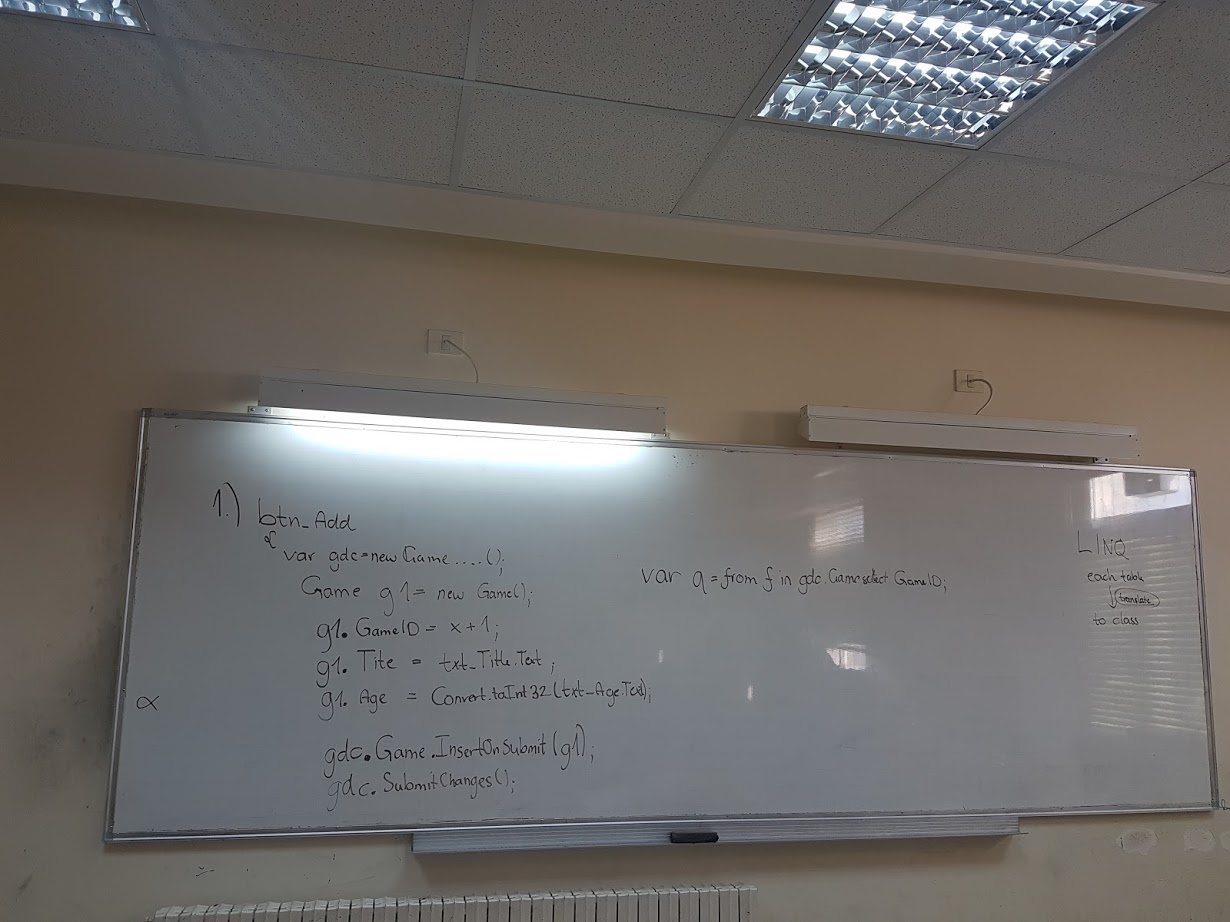 1.) btn_Add
{
var gdc=new Game....();
Game g1= new Game();
g1. GameID = x+1;
g1. Tite = txt_Title.Text ;
g1. Age = Convert.toInt32(txt_Age.Text);
gdc.Game.InsertOnSubmit(g1);
gdc.SubmitChanges();
∝
var q=from f in gdc.Game select GameID;
LINQ
each table
↓ translate
to class